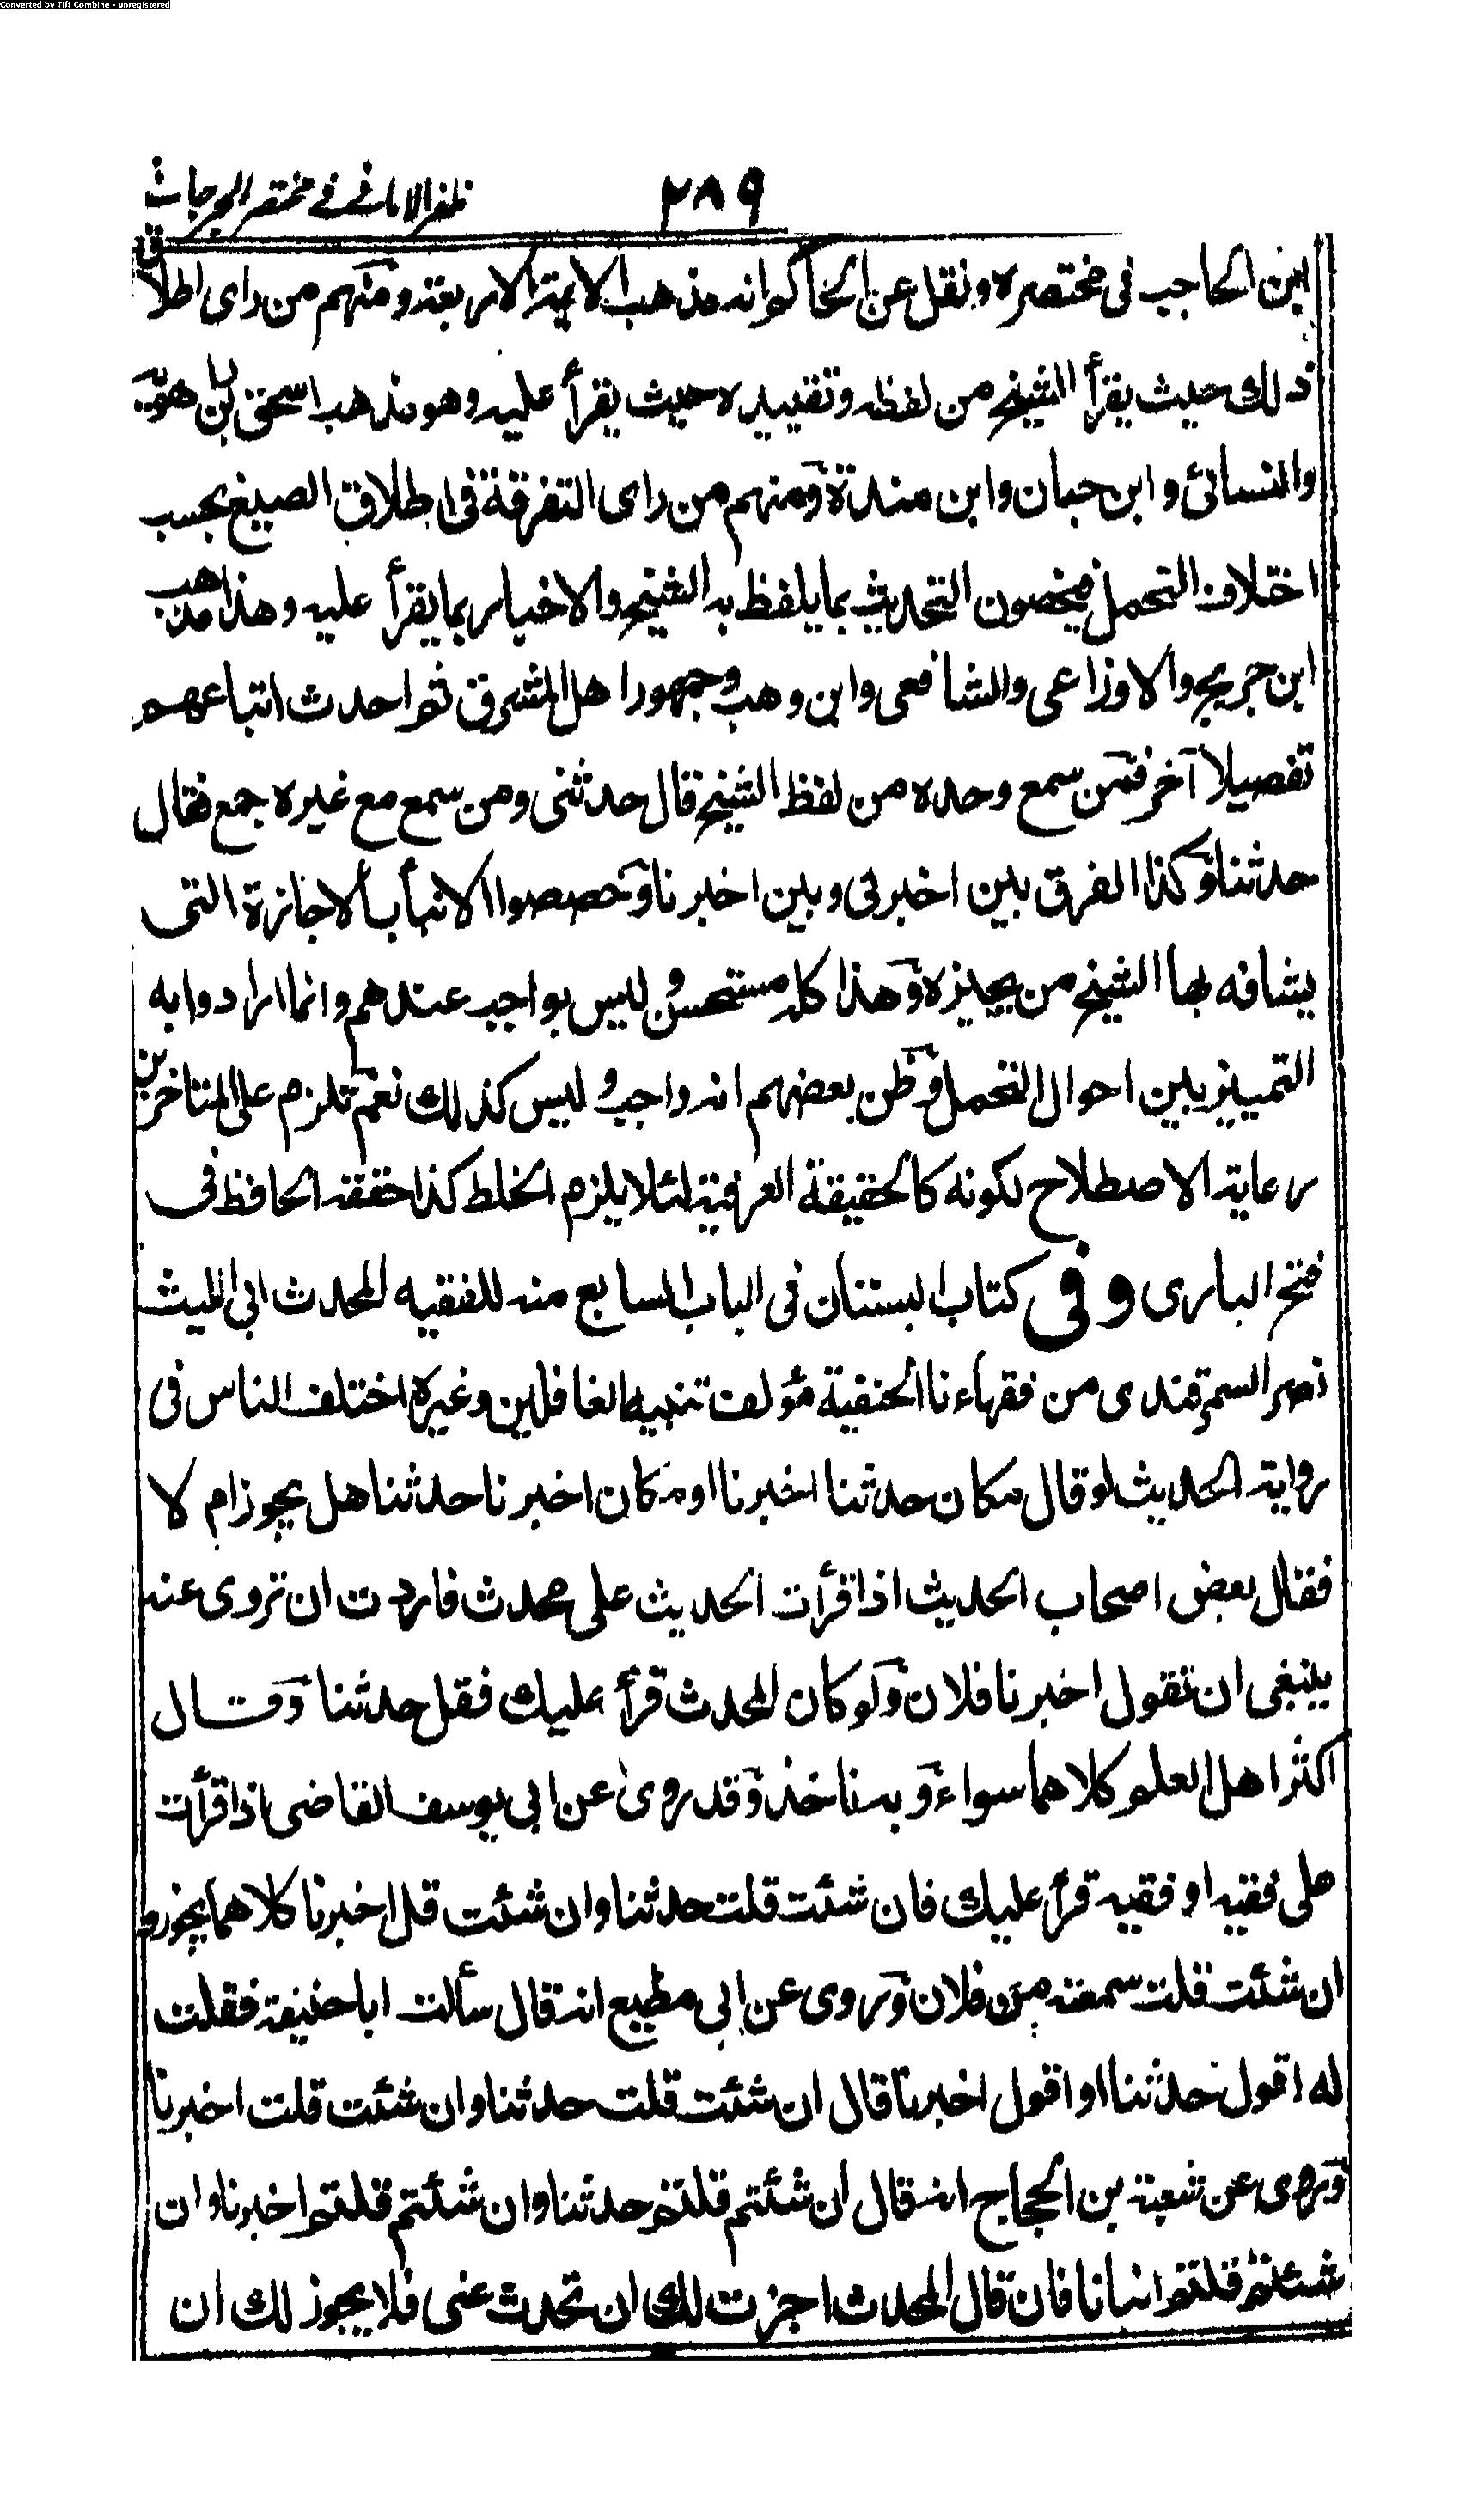 Converted by Tiff Combine - unregistered
ظفر الامانی فی مختصر الجرجانی
٢٨٩
ابن الحاجب فی مختصره ونقل عن الحاكم انه مذهب الائمة الاربعة ومنهم من رای اطلاق
ذلك حیث یقرأ الشیخ من لفظه وتقییده حیث یقرأ علیه وهو مذهب اسحق بن راهویه
والنسائی وابن حبان وابن مندة ومنهم من رای التفرقة فی اطلاق الصیغ بحسب
اختلاف التحمل فیخصون التحدیث بما یلفظ به الشیخ والاخبار بما یقرأ علیه وهذا مذهب
ابن جریج والاوزاعی والشافعی وابن وهب وجمهور اهل المشرق ثم احدث اتباعهم
تفصیلا آخر فمن سمع وحده من لفظ الشیخ قال حدثنی ومن سمع مع غیره جمع فقال
حدثنا وكذا الفرق بین اخبرنی وبین اخبرنا وخصصوا الانبأ بالاجازة التی
یشافه بها الشیخ من یجیزه وهذا كله مستحسن ولیس بواجب عندهم وانما ارادوا به
التمییز بین احوال التحمل وظن بعضهم انه واجب ولیس كذلك نعم تلزم علی المتاخرین
رعایة الاصطلاح لكونه كالحقیقة العرفیة لئلا یلزم الخلط كذا حققه الحافظ فی
فتح الباری وفی كتاب البستان فی الباب السابع منه للفقیه المحدث ابی اللیث
نصر السمرقندی من فقهاءنا الحنفیة مؤلف تنبیه الغافلین وغیره اختلف الناس فی
روایة الحدیث لو قال مكان حدثنا اخبرنا او مكان اخبرنا حدثنا هل یجوز ام لا
فقال بعض اصحاب الحدیث اذا قرأت الحدیث علی محدث فاردت ان تروی عنه
ینبغی ان تقول اخبرنا فلان ولو كان المحدث قرأ علیك فقل حدثنا وقال
اكثر اهل العلم كلاهما سواء وبه ناخذ وقد روی عن ابی یوسف القاضی اذا قرأت
علی فقیه او فقیه قرأ علیك فان شئت قلت حدثنا وان شئت قل اخبرنا كلاهما یجوز و
ان شئت قلت سمعته من فلان وروی عن ابی مطیع انه قال سألت اباحنیفة فقلت
له اقول حدثنا او اقول اخبرنا قال ان شئت قلت حدثنا وان شئت قلت اخبرنا
وروی عن شعبة بن الحجاج انه قال ان شئتم قلتم حدثنا وان شئتم قلتم اخبرنا وان
شئتم قلتم انبانا فان قال المحدث اجزت لك ان تحدث عنی فلا یجوز لك ان